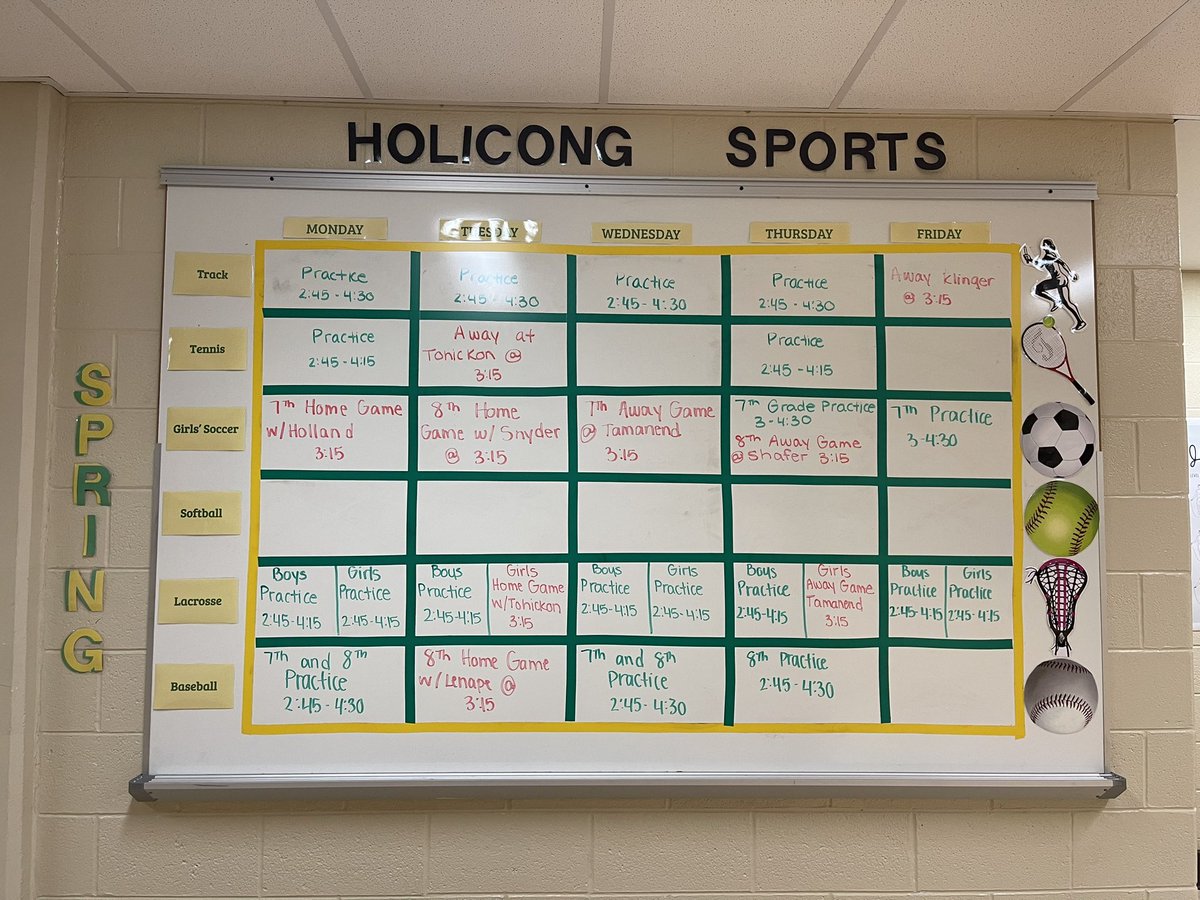 HOLICONG SPORTS
SPRING
MONDAY TUESDAY WEDNESDAY THURSDAY FRIDAY
Track
Practice
2:45 - 4:30
Practice
2:45 - 4:30
Practice
2:45 - 4:30
Practice
2:45 - 4:30
Away Klinger
@ 3:15
Tennis
Practice
2:45 - 4:15
Away at
Tohickon @
3:15
Practice
2:45 - 4:15
Girls' Soccer
7th Home Game
w/Holland
3:15
8th Home
Game w/ Snyder
@ 3:15
7th Away Game
@ Tamanend
3:15
7th Grade Practice
3 - 4:30
8th Away Game
@ Shafer 3:15
7th Practice
3-4:30
Softball
Lacrosse
Boys
Practice
2:45-4:15
Girls
Practice
2:45-4:15
Boys
Practice
2:45-4:15
Girls
Home Game
w/Tohickon
3:15
Boys
Practice
2:45-4:15
Girls
Practice
2:45-4:15
Boys
Practice
2:45-4:15
Girls
Away Game
Tamanend
3:15
Boys
Practice
2:45-4:15
Girls
Practice
2:45-4:15
Baseball
7th and 8th
Practice
2:45 - 4:30
8th Home Game
w/ Lenape @
3:15
7th and 8th
Practice
2:45 - 4:30
8th Practice
2:45 - 4:30